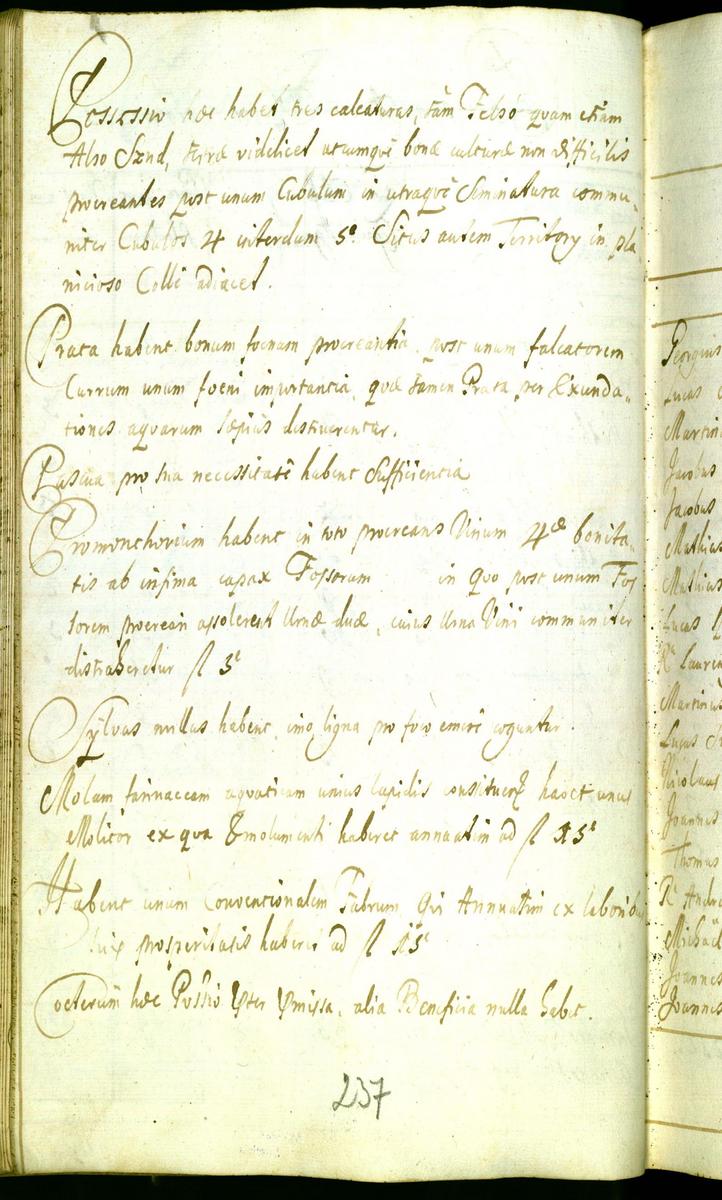 Possessio hæc habet tres calcaturas, tàm Felsö quam etiam
Also Szud, terræ videlicet utcumquè bonæ culturæ non difficilis
procreantes post unum Cubulum in utraquè Seminatura commu-
niter Cubulos 4 interdum 5. Situs autem Territory in pla
nicioso Colli adiacet.
Prata habent bonum foenum procreantia, post unum falcatorem
Currum unum foeni importantia, quæ tamen Prata per Exunda-
tiones aquarum sæpius destruerentur.
Pascua pro sua necessitatè habent Sufficientia
Promonthorium habent in toto procreans Vinum 4tæ bonita-
tis ab infima capax Fossorum in quo post unum Fos
sorem procreari assolerent Urnæ duæ, cuius Urna Vini communiter
distraheretur fl 3
Sylvas nullas habent, imo ligna pro foco emere coguntur.
Molam farinaceam aquaticam unius lapidis habet unus
Molitor ex qua Emolumenti haberet annuatim ad fl
Habent unum Conventionalem Fabrum, Qui Annuatim ex laboribus
suæ prosperitatis haberet ad fl
Coeterum hæc Possio pter pmissa, alia Beneficia nulla habet.
237
Georgius
Lucas
Martin
Jacobus
Jacobus
Mathias
Mathias
Lucas
Laurea
Martinus
Lucas
Nicolaus
Joannes
Thomas
Andre
Michaël
Joannes
Joannes